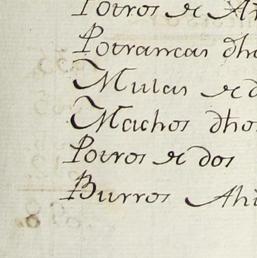 Potros de A
Potrancas dho
Mulas de d
Machos dho
Potros de dos
Burros Ahi